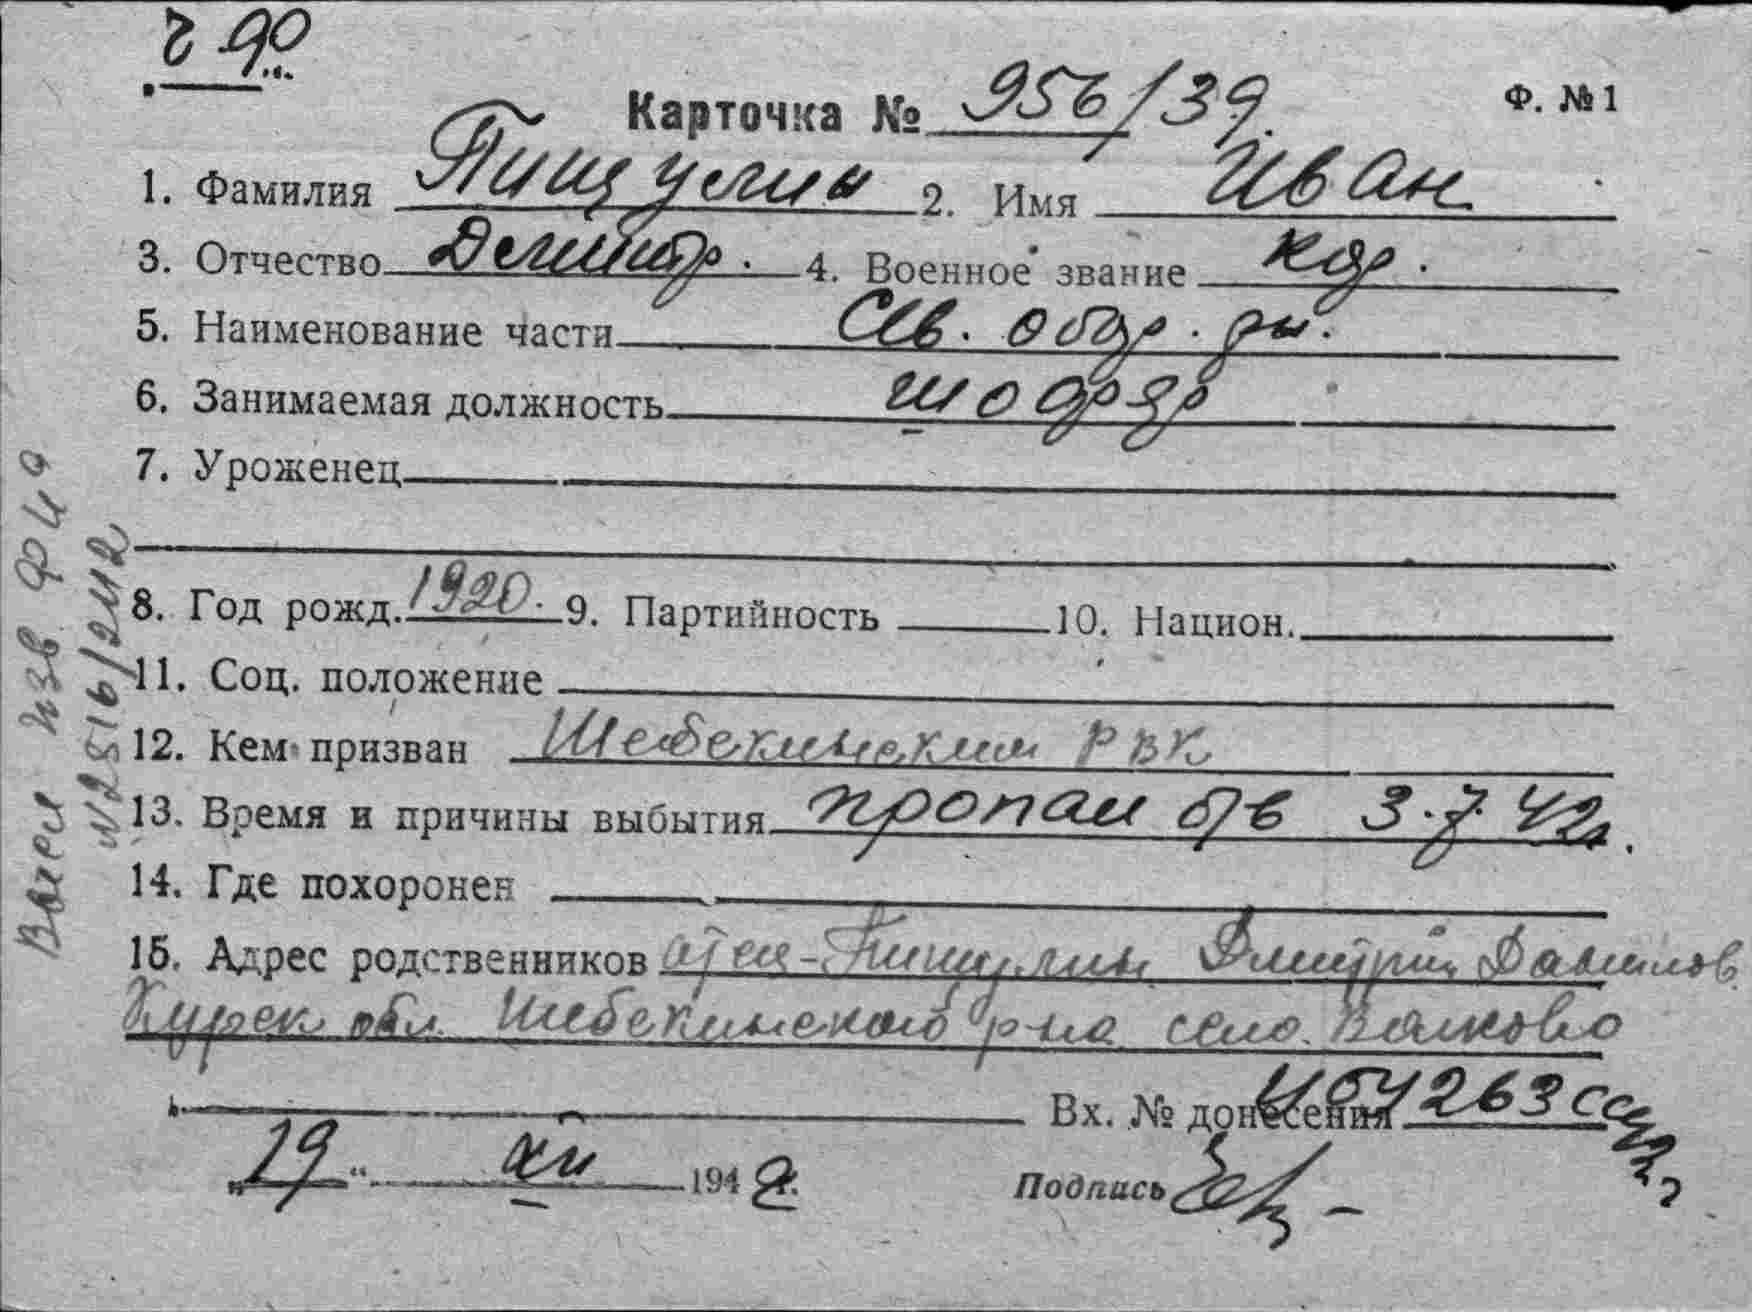 Карточка № 956/39.
Ф. № 1
1. Фамилия Пищулин 2. Имя Иван
3. Отчество Дмитр. 4. Военное звание кр.
5. Наименование части
6. Занимаемая должность шофер
7. Уроженец
8. Год рожд. 1920. 9. Партийность 10. Национ.
11. Соц. положение
12. Кем призван Шебекинским РВК
13. Время и причины выбытия пропал б/в 3.7.42г.
14. Где похоронен
15. Адрес родственников отец - Пищулин Дмитрий Данилов.
Курск обл. Шебекинского р-на село. Волково
Вх. № донесения 263сс
„19“ XII 1942г. Подпись
№ 2816/2112